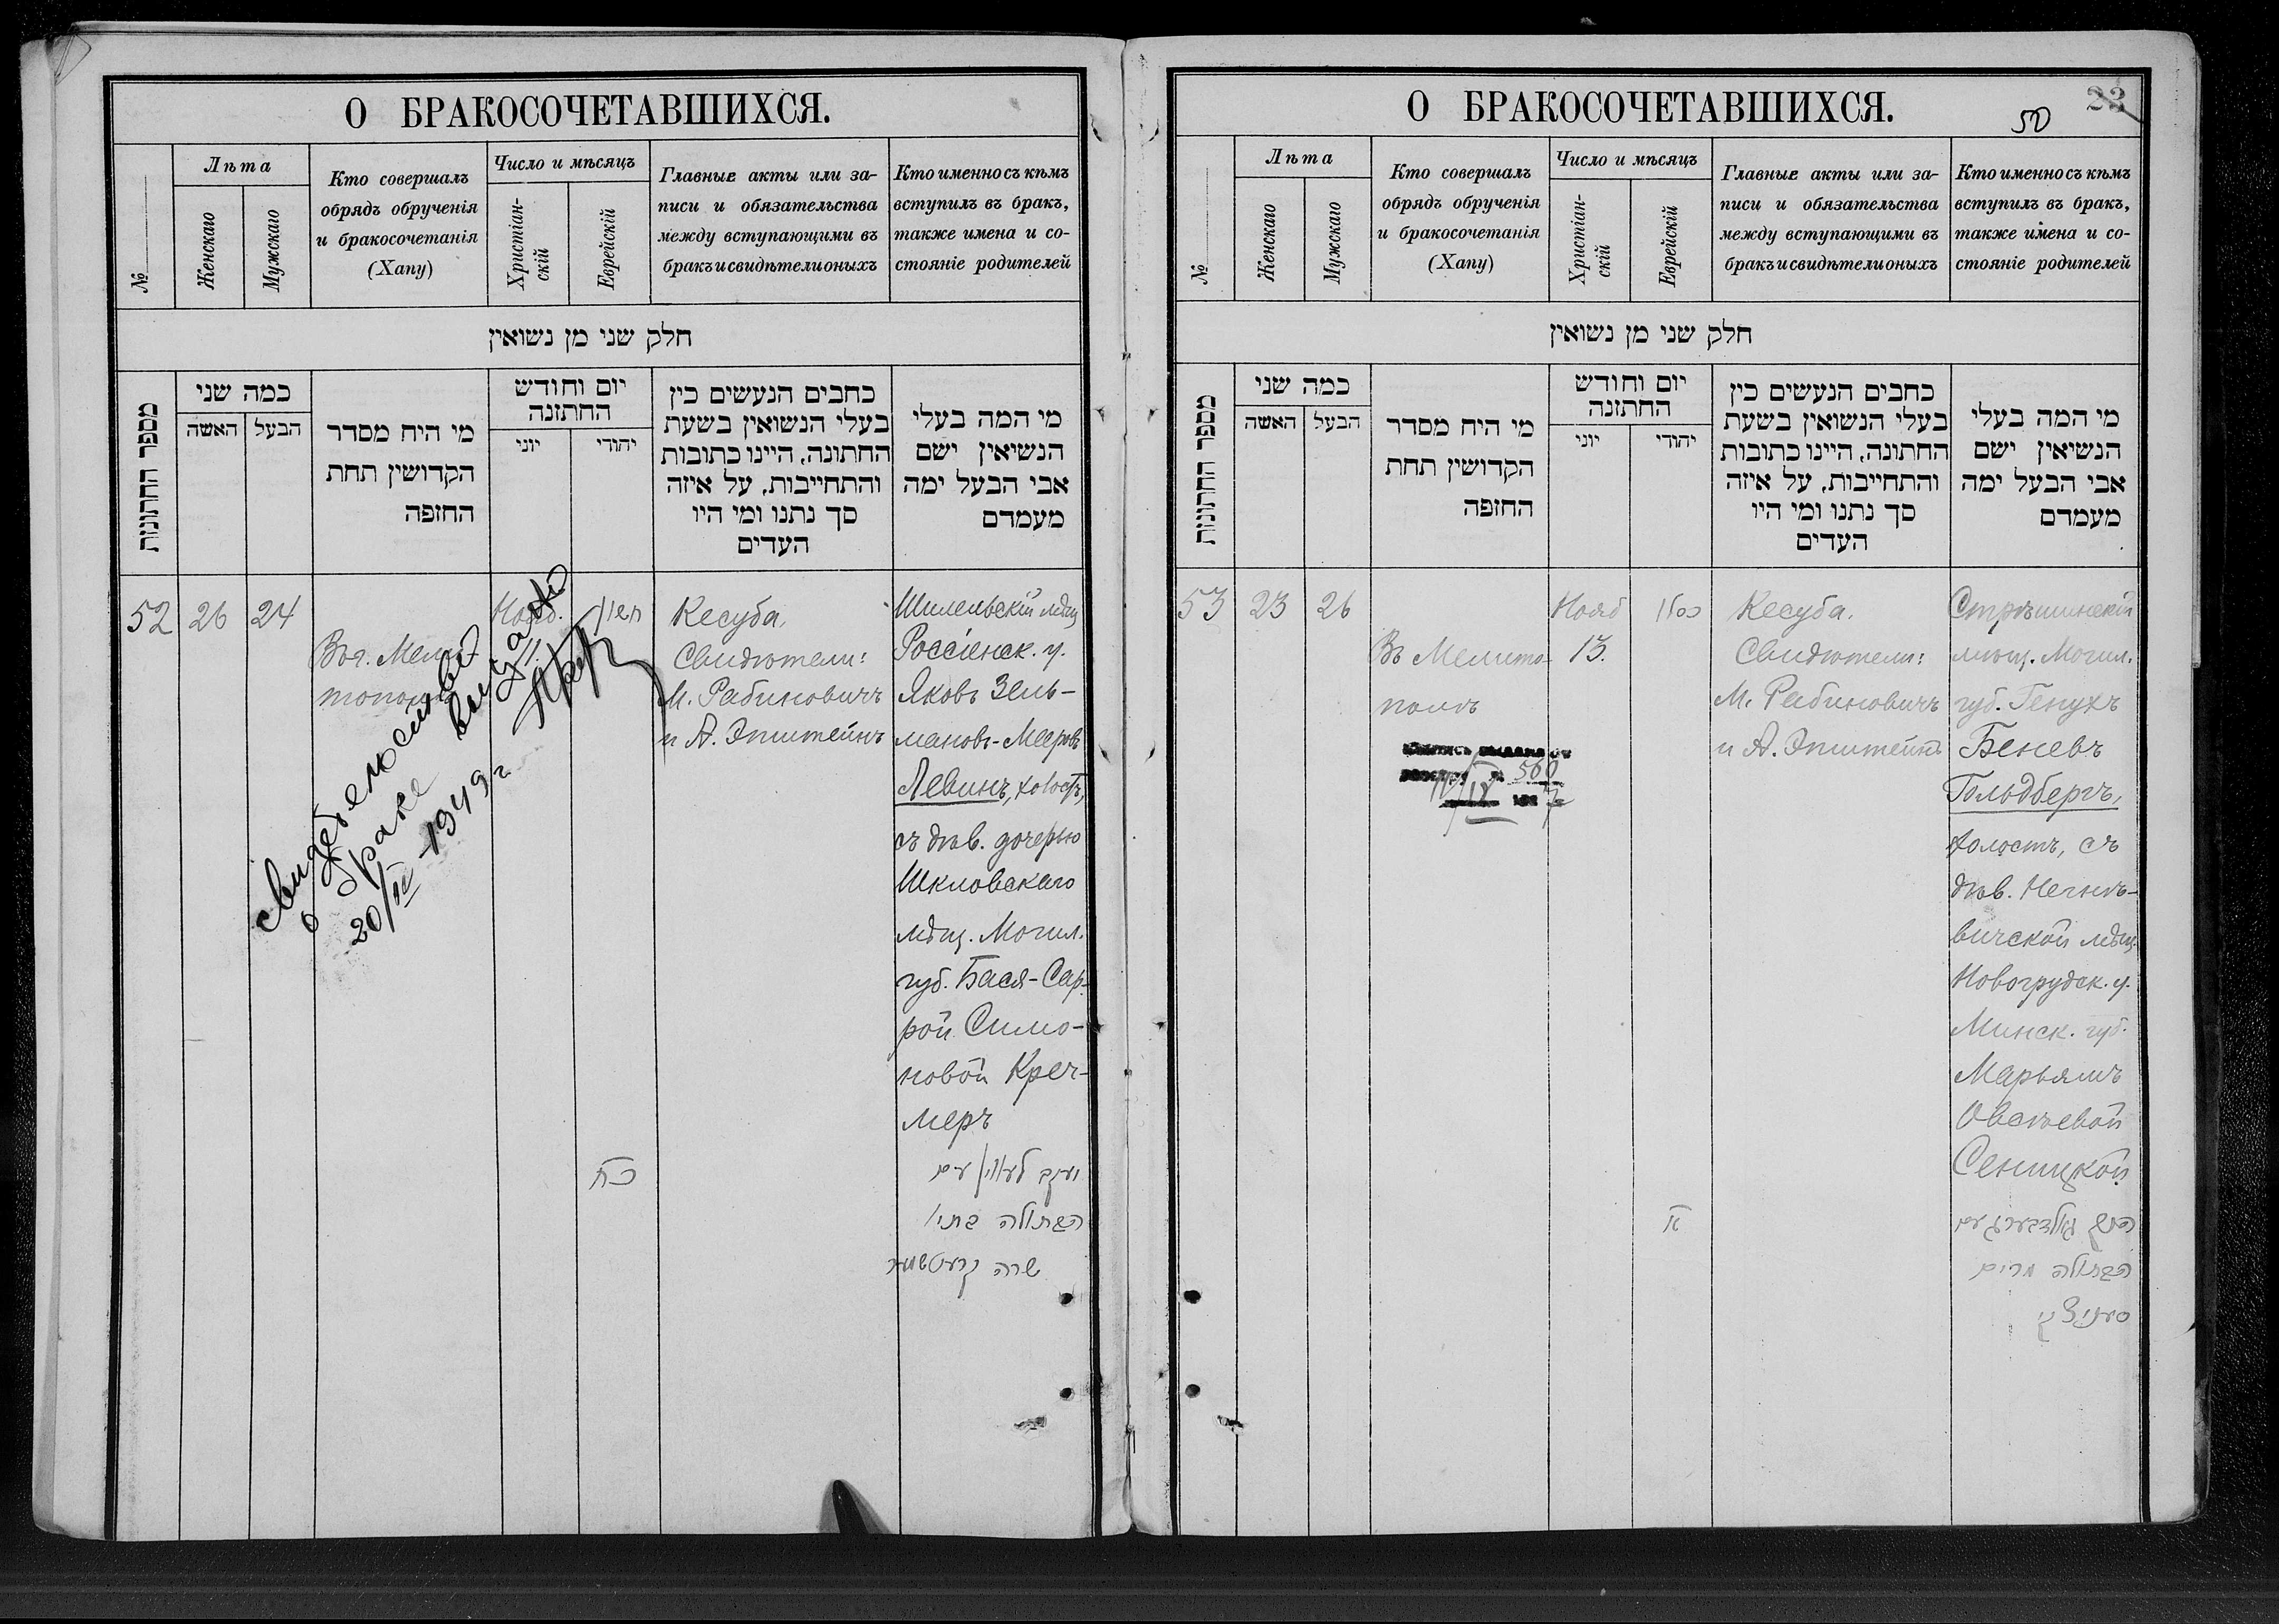 О БРАКОСОЧЕТАВШИХСЯ.
№
Лѣта
Женскаго
Мужскаго
Кто совершалъ
обрядъ обрученія
и бракосочетанія
(Хапу)
Число и мѣсяцъ
Христіан-
скій
Еврейскій
Главные акты или за-
писи и обязательства
между вступающими въ
бракъ и свидѣтели оныхъ
Кто именно съ кѣмъ
вступилъ въ бракъ,
также имена и со-
стояніе родителей
חלק שני מן נשואין
מספר החתונות
כמה שני
האשה
הבעל
מי היח מסדר
הקדושין תחת
החזפה
יום וחודש
החתזנה
יוני
יהודי
כחבים הנעשים כין
בעלי הנשואין בשעת
החתונה, היינו כתובות
והתחייבות, על איזה
סך נתנו ומי היו
העדים
מי המה בעלי
הנשיאין ישם
אבי הבעל ימה
מעמדם
52
26
24
Въ г. Мели-
тополѣ
Нояб.
11.
חשון
כח
Кесуба,
Свидѣтели:
М. Рабиновичъ
и А. Эпштейнъ
мѣщ.
Россіенск. у.
Яковъ Зель-
мановъ-Мееровъ
Левинъ, холостъ,
съ дѣв. дочерью
Шкловскаго
мѣщ. Могил.
губ. Бася-Сар-
рой Симо-
новой Креч-
меръ
יעקב לעווין עם
הבתולה בתי׳
שרה קרעטשמער
свидетельство
о браке выдано
20/IV-1949 г
О БРАКОСОЧЕТАВШИХСЯ.
50
23
№
Лѣта
Женскаго
Мужскаго
Кто совершалъ
обрядъ обрученія
и бракосочетанія
(Хапу)
Число и мѣсяцъ
Христіан-
скій
Еврейскій
Главные акты или за-
писи и обязательства
между вступающими въ
бракъ и свидѣтели оныхъ
Кто именно съ кѣмъ
вступилъ въ бракъ,
также имена и со-
стояніе родителей
חלק שני מן נשואין
מספר החתונות
כמה שני
האשה
הבעל
מי היח מסדר
הקדושין תחת
החזפה
יום וחודש
החתזנה
יוני
יהודי
כחבים הנעשים כין
בעלי הנשואין בשעת
החתונה, היינו כתובות
והתחייבות, על איזה
סך נתנו ומי היו
העדים
מי המה בעלי
הנשיאין ישם
אבי הבעל ימה
מעמדם
53
23
26
Въ Мелито-
полѣ
560
Нояб
13.
כסלו
א
Кесуба.
Свидѣтели:
М. Рабиновичъ
и А. Эпштейнъ
Стрѣшинскій
мѣщ. Могил.
губ. Генухъ
Беневъ
Гольдбергъ,
холостъ, съ
дѣв. Негнѣ-
вичской мѣщ.
Новогрудск. у.
Минск. губ.
Марьямъ
Овсѣевой
Сеницкой
הענך גאלדבערג עם
הבתולה מרים
סעניצקי